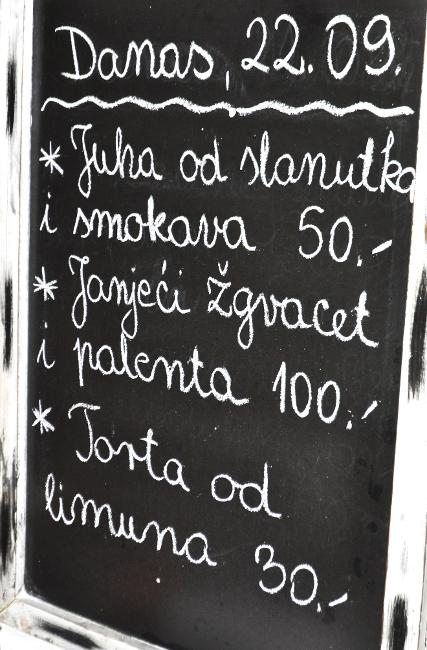 Danas, 22.09.
* Juha od slanutka
i smokava 50.-
* Janjeći žgvacet
i palenta 100.-
* Torta od
limuna 30.-